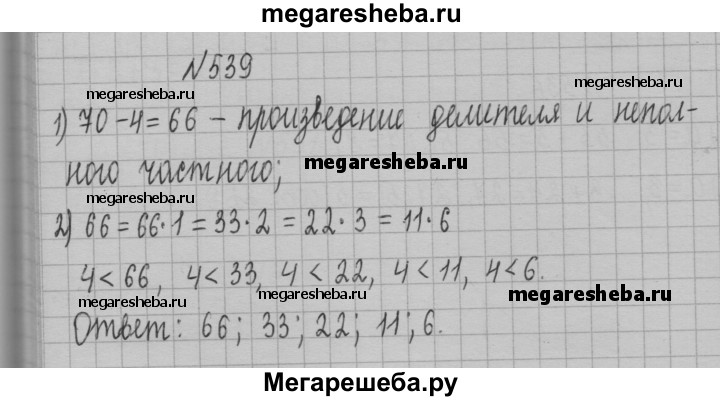 megaresheba.ru
№539
megaresheba.ru megaresheba.ru
1) 70-4=66 - произведение делителя и непол-
ного частного; megaresheba.ru
megaresheba.ru
2) 66=66·1=33·2=22·3=11·6
4<66, 4<33, 4<22, 4<11, 4<6.
megaresheba.ru megaresheba.ru megaresheba.ru
Ответ: 66; 33; 22; 11; 6.
Мегарешеба.ру